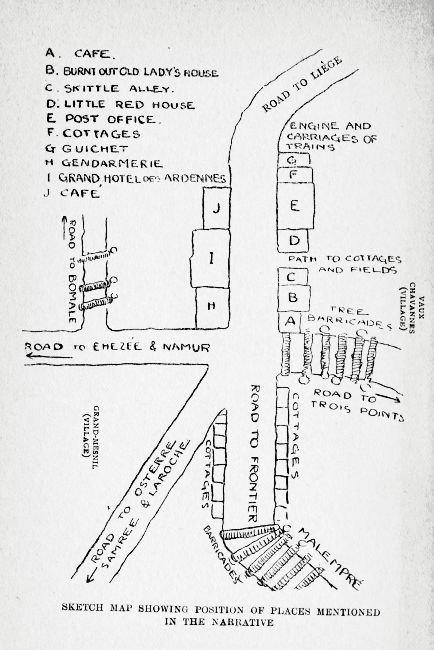 A. CAFE.
B. BURNT OUT OLD LADY'S HOUSE
C. SKITTLE ALLEY.
D. LITTLE RED HOUSE
E POST OFFICE.
F. COTTAGES
G GUICHET
H GENDARMERIE
I GRAND HOTEL DES ARDENNES
J CAFÉ
ROAD TO LIÉGE
ENGINE AND
CARRIAGES OF
TRAINS
G
F
E
D
J
I
H
PATH TO COTTAGES
AND FIELDS
C
B
A
ROAD TO BOMALE
TREE
BARRICADES
VAUX
CHAVANNES
(VILLAGE)
ROAD TO EHEZÉE & NAMUR
ROAD TO
TROIS POINTS
GRAND-MESNIL
(VILLAGE)
COTTAGES
ROAD TO FRONTIER
COTTAGES
ROAD TO OSTERRE
SAMRÉE & LAROCHE
BARRICADES
MALEMPRÉ
SKETCH MAP SHOWING POSITION OF PLACES MENTIONED
IN THE NARRATIVE